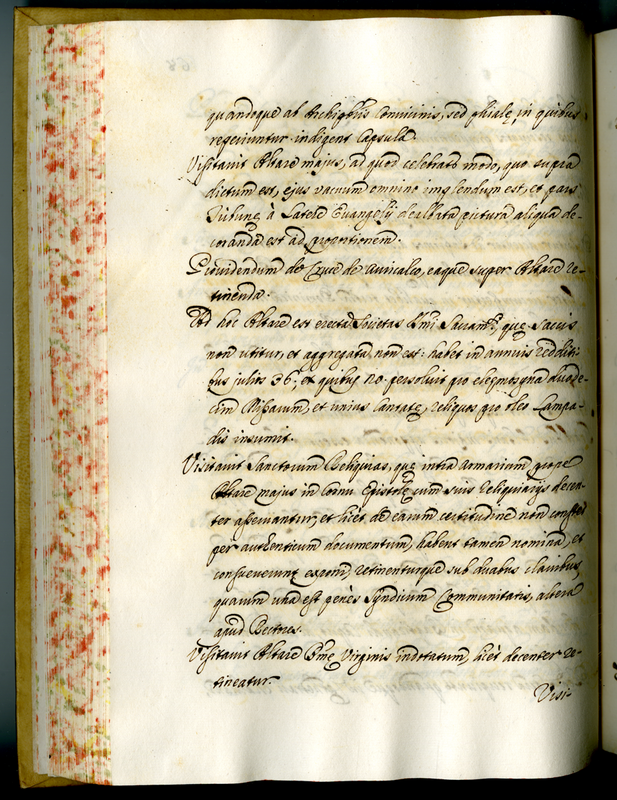 quandoque ab Archipbris Convicinis, sed phialę, in quibus
reperiuntur indigent Capsula.
Visitavit Altare majus, ad quod celebratō modo, quo supra
dictum est, ejus vacuum omnino implendum est, et pars
Tribunę à Latere Evangelij dealbata pictura aliqua de-
coranda est ad proportionem.
Providendum de Cruce de auricalco, eaque super Altare re-
tinenda.
Ad hoc Altare est erecta Societas SSmi Sacramti, quę Saccis
non utitur, et aggregata non est: habet in annuis redditi-
bus julios 36; ex quibus 20. persolvit pro elęmosyna duode-
cim Missarum, et unius Cantatę, reliquos pro oleo Lampa-
dis insumit.
Visitavit Sanctorum Reliquias, quę intra Armarium prope
Altare majus in Cornu Epistolę cum suis reliquiarijs decen-
ter asservantur, et licet de earum certitudine non constet
per authenticum documentum, habent tamen nomina, et
consueverunt exponi, retinenturque sub duabus clavibus,
quarum una est penes Syndicum Communitatis, altera
apud Rectores.
Visitavit Altare Bmę Virginis indotatum, licet decenter re-
tineatur.
Visi-